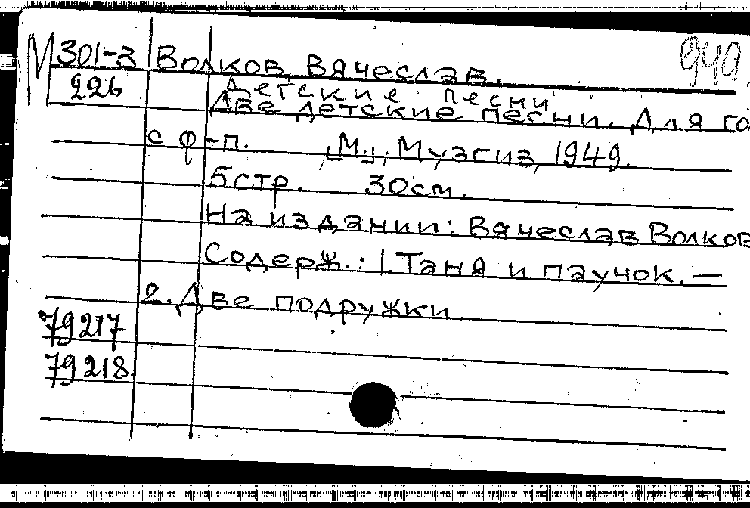 М 301-3 Волков, Вячеслав. 949
226 Детские песни
Две детские песни. Для го
с ф-п. [М.], Музгиз, 1949.
5стр. 30см.
На издании: Вячеслав Волков
Содерж.: 1. Таня и паучок. —
2. Две подружки
79217
79218